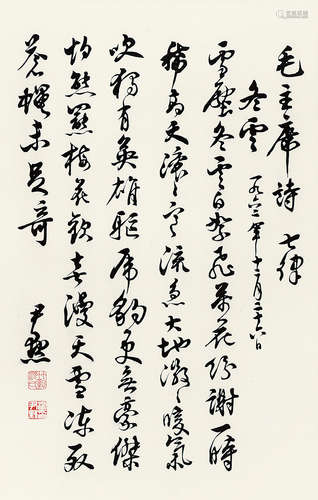 毛主席詩 七律
冬雲 一九六二年十二月二十六日
雪壓冬雲白絮飛萬花紛謝一時
稀高天滾〻寒流急大地微〻暖氣
吹獨有英雄驅虎豹更無豪傑
怕熊羆梅花歡喜漫天雪凍死
蒼蠅未足奇
尹默